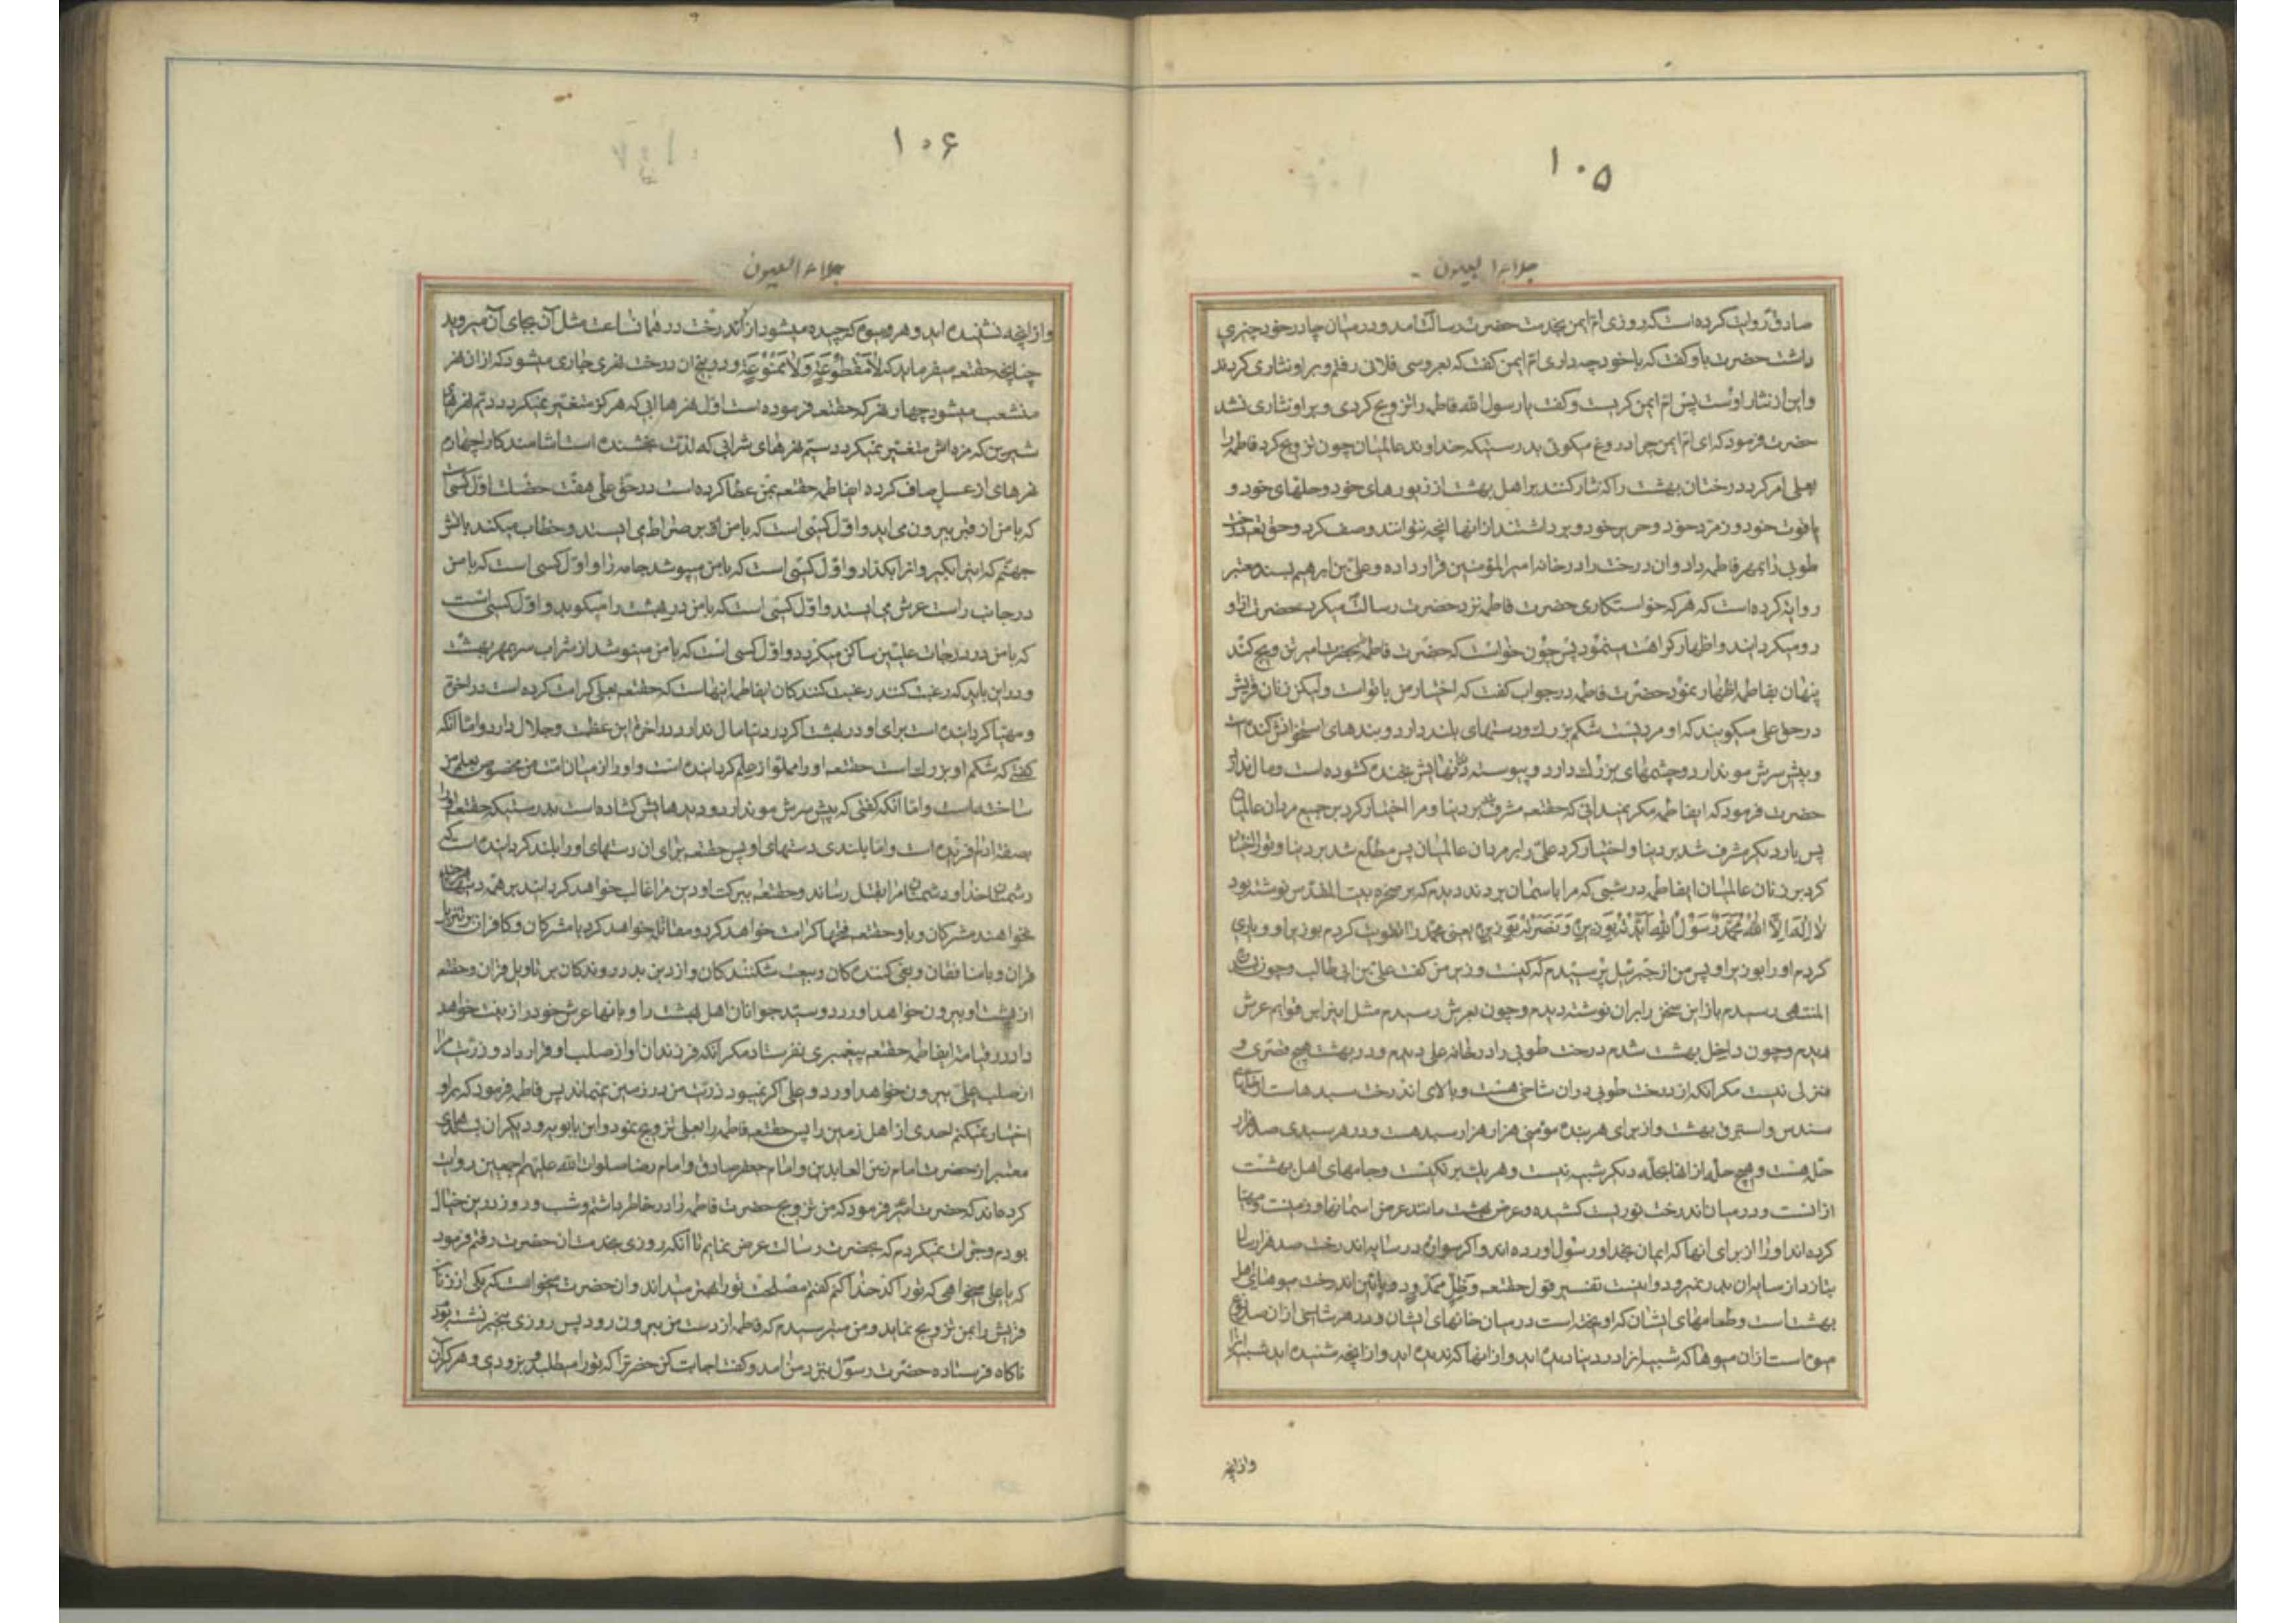 ۱۰۵
جلاء العیون
صادق روایت کرده است که روزی ام ایمن بخدمت حضرت رسالت آمد و در میان چادر خود چیزی
داشت حضرت باو گفت که با خود چه داری ام ایمن گفت که بعروسی فلان رفتم و بر او نثاری کردند
و این از نثار اوست پس ام ایمن گریست و گفت یا رسول الله فاطمه را تزویج کردی و بر او نثاری نشد
حضرت فرمود که ای ام ایمن چرا دروغ میگوئی بدرستیکه خداوند عالمیان چون تزویج کرد فاطمه را
بعلی امر کرد درختان بهشت را که نثار کنند بر اهل بهشت از زیورهای خود و حلهای خود و
یاقوت خود و زمرد خود و حریر خود و برداشتند از انها آنچه نتوانند وصف کرد و حق تعم درخت
طوبی را بمهر فاطمه داد و ان درخت را در خانه امیر المؤمنین قرار داده و علی بن ابرهیم بسند معتبر
روایة کرده است که هر که خواستکاری حضرت فاطمه نزد حضرت رسالت میکرد حضرت از او
رو میکردانید و اظهار کراهت مینمود پس چون خواست که حضرت فاطمه بحضرت امیر تزویج کند
پنهان بفاطمه اظهار نمود حضرت فاطمه در جواب گفت که اختیار من با تو است ولیکن زنان قریش
در حق علی میگویند که او مردیست شکم بزرگ و دستهای بلند دارد و بندهای استخوانش کنده است
و پیش سرش مو ندارد و چشمهای بزرگ دارد و پیوسته دهانش بخنده کشوده است و مال ندارد
حضرت فرمود که ایفاطمه مکر نمیدانی که حقتعم مشرف شد بر دنیا و مرا اختیار کرد بر جمیع مردان عالمیان
پس بار دیکر مشرف شد بر دنیا و اختیار کرد علی را بر مردان عالمیان پس مطلع شد بر دنیا و تو را اختیار
کرد بر زنان عالمیان ایفاطمه در شبی که مرا باسمان بردند دیدم که بر صخره بیت المقدس نوشته بود
لا اله الا الله محمد رسول الله ایدته بوزیره و نصرته بوزیره یعنی محمد را تقویت کردم بوزیر او و یاری
کردم او را بوزیر او پس من از جبرئیل پرسیدم که کیست وزیر من گفت علی بن ابی طالب و چون بسدرة
المنتهی رسیدم باز این سخن را بران نوشته دیدم و چون بعرش رسیدم مثل اینرا بر قوایم عرش
دیدم و چون داخل بهشت شدم درخت طوبی را در خانه علی دیدم و در بهشت هیچ قصری و
منزلی نیست مکر انکه از درخت طوبی در ان شاخی هست و بالای اندرخت سبدها است از حلهای
سندس و استبرق بهشت و از برای هر بنده مؤمنی هزار هزار سبد هست و در هر سبدی صد هزار
حله هست و هیچ حله از انها بحله دیکر شبیه نیست و هر یک برنگیست و جامهای اهل بهشت
از انست و در میان اندرخت نوریست کشیده و عرض بهشت مانند عرض اسمانها و زمینست و مهیا
کرده اند او را از برای انها که ایمان بخدا و رسول اورده اند و اکر سواره در سایه اندرخت صد هزار سال
بتازد از سایه ان بدر نمیرود و اینست تفسیر قول حقتعم و ظل ممدود و پائین اندرخت میوهای اهل
بهشت است و طعامهای ایشان که اویخته است در میان خانهای ایشان و در هر شاخی از ان صد نوع
میوه است از ان میوها که شبیه انرا در دنیا دیده اید و از انها که ندیده اید و از انچه شنیده اید شبیه انرا
و از انچه
۱۰۶
جلاء العیون
و از انچه نشنیده اید و هر میوه که چیده میشود از اندرخت در همان ساعت مثل آن بجای آن میروید
چنانچه حقتعم میفرماید که لا مقطوعة و لا ممنوعة و در بیخ ان درخت نهری جاری میشود که از ان نهر
منشعب میشود چهار نهر که حقتعم فرموده است اول نهرها ابی که هرکز متغیر نمیکردد دویم نهرهای
شیری که مزه اش متغیر نمیکردد سیم نهرهای شرابی که لذت بخشنده است اشامندکانرا چهارم
نهرهای از عسل صاف کرده ایفاطمه حقتعم بمن عطا کرده است در حق علی هفت خصلت اول کسی است
که با من از قبر بیرون می اید و اول کسی است که با من بر صراط می ایستد و خطاب میکند باتش
جهنم که اینرا بکیر و انرا بکذار و اول کسی است که با من میپوشد جامه را و اول کسی است که با من
در جانب راست عرش می ایستد و اول کسی است که با من در بهشت را میکوبد و اول کسی است
که با من در درجات علیین ساکن میکردد و اول کسی است که با من مینوشد از شراب سر بمهر بهشت
و در این باید که رغبت کنند رغبت کنندکان ایفاطمه اینهاست که حقتعم بعلی کرامت کرده است در اخرة
و مهیا کردانیده است برای او در بهشت اکر در دنیا مال ندارد در اخرة این عظمت و جلال دارد و اما انکه
گفتی که شکم او بزرک است حقتعم او را مملو از علم کردانیده است و او را از میان امت من مخصوص بعلم من
ساخته است و اما انکه گفتی که پیش سرش مو ندارد و دیدهایش کشاده است بدرستیکه حقتعم او را
بصفة ادم افریده است و اما بلندی دستهای او پس حقتعم برای ان دستهای او را بلند کردانیده است که
دشمنان خدا و دشمنان مرا بقتل رساند و حقتعم ببرکت او دین مرا غالب خواهد کردانید بر همه دینها هر چند
نخواهند مشرکان و باو حقتعم فتحها کرامت خواهد کرد و مقاتله خواهد کرد با مشرکان و کافران بر تنزیل
قران و با منافقان و بغی کنندکان و بیعت شکنندکان و از دین بدر روندکان بر تاویل قران و حقتعم
از پشت او بیرون خواهد اورد دو سید جوانان اهل بهشت را و بانها عرش خود را زینت خواهد
داد در قیامة ایفاطمه حقتعم پیغمبری نفرستاد مکر انکه فرزندان او از صلب او قرار داد و ذریت مرا
از صلب علی بیرون خواهد اورد و علی اکر نمیبود ذریت من در زمین نمیماند پس فاطمه فرمود که بر او
اختیار نمیکنم احدی از اهل زمین را پس حقتعم فاطمه را بعلی تزویج نمود و ابن بابویه و دیکران بسندهای
معتبر از حضرت امام زین العابدین و امام جعفر صادق و امام رضا صلوات الله علیهم اجمعین روایت
کرده اند که حضرت امیر فرمود که من تزویج حضرت فاطمه را در خاطر داشتم و شب و روز در این خیال
بودم و جرات نمیکردم که بحضرت رسالت عرض نمایم تا آنکه روزی بخدمت ان حضرت رفتم فرمود
که یا علی میخواهی که تو را کدخدا کنم گفتم مصلحت تو را بهتر میداند و ان حضرت میخواست که یکی از زنان
قریش را بمن تزویج نماید و من میترسیدم که فاطمه از دست من بیرون رود پس روزی بیخبر نشسته بودم
ناکاه فرستاده حضرت رسول بنزد من امد و گفت اجابت کن حضرت را که تو را میطلبد بزودی و هرکز آن